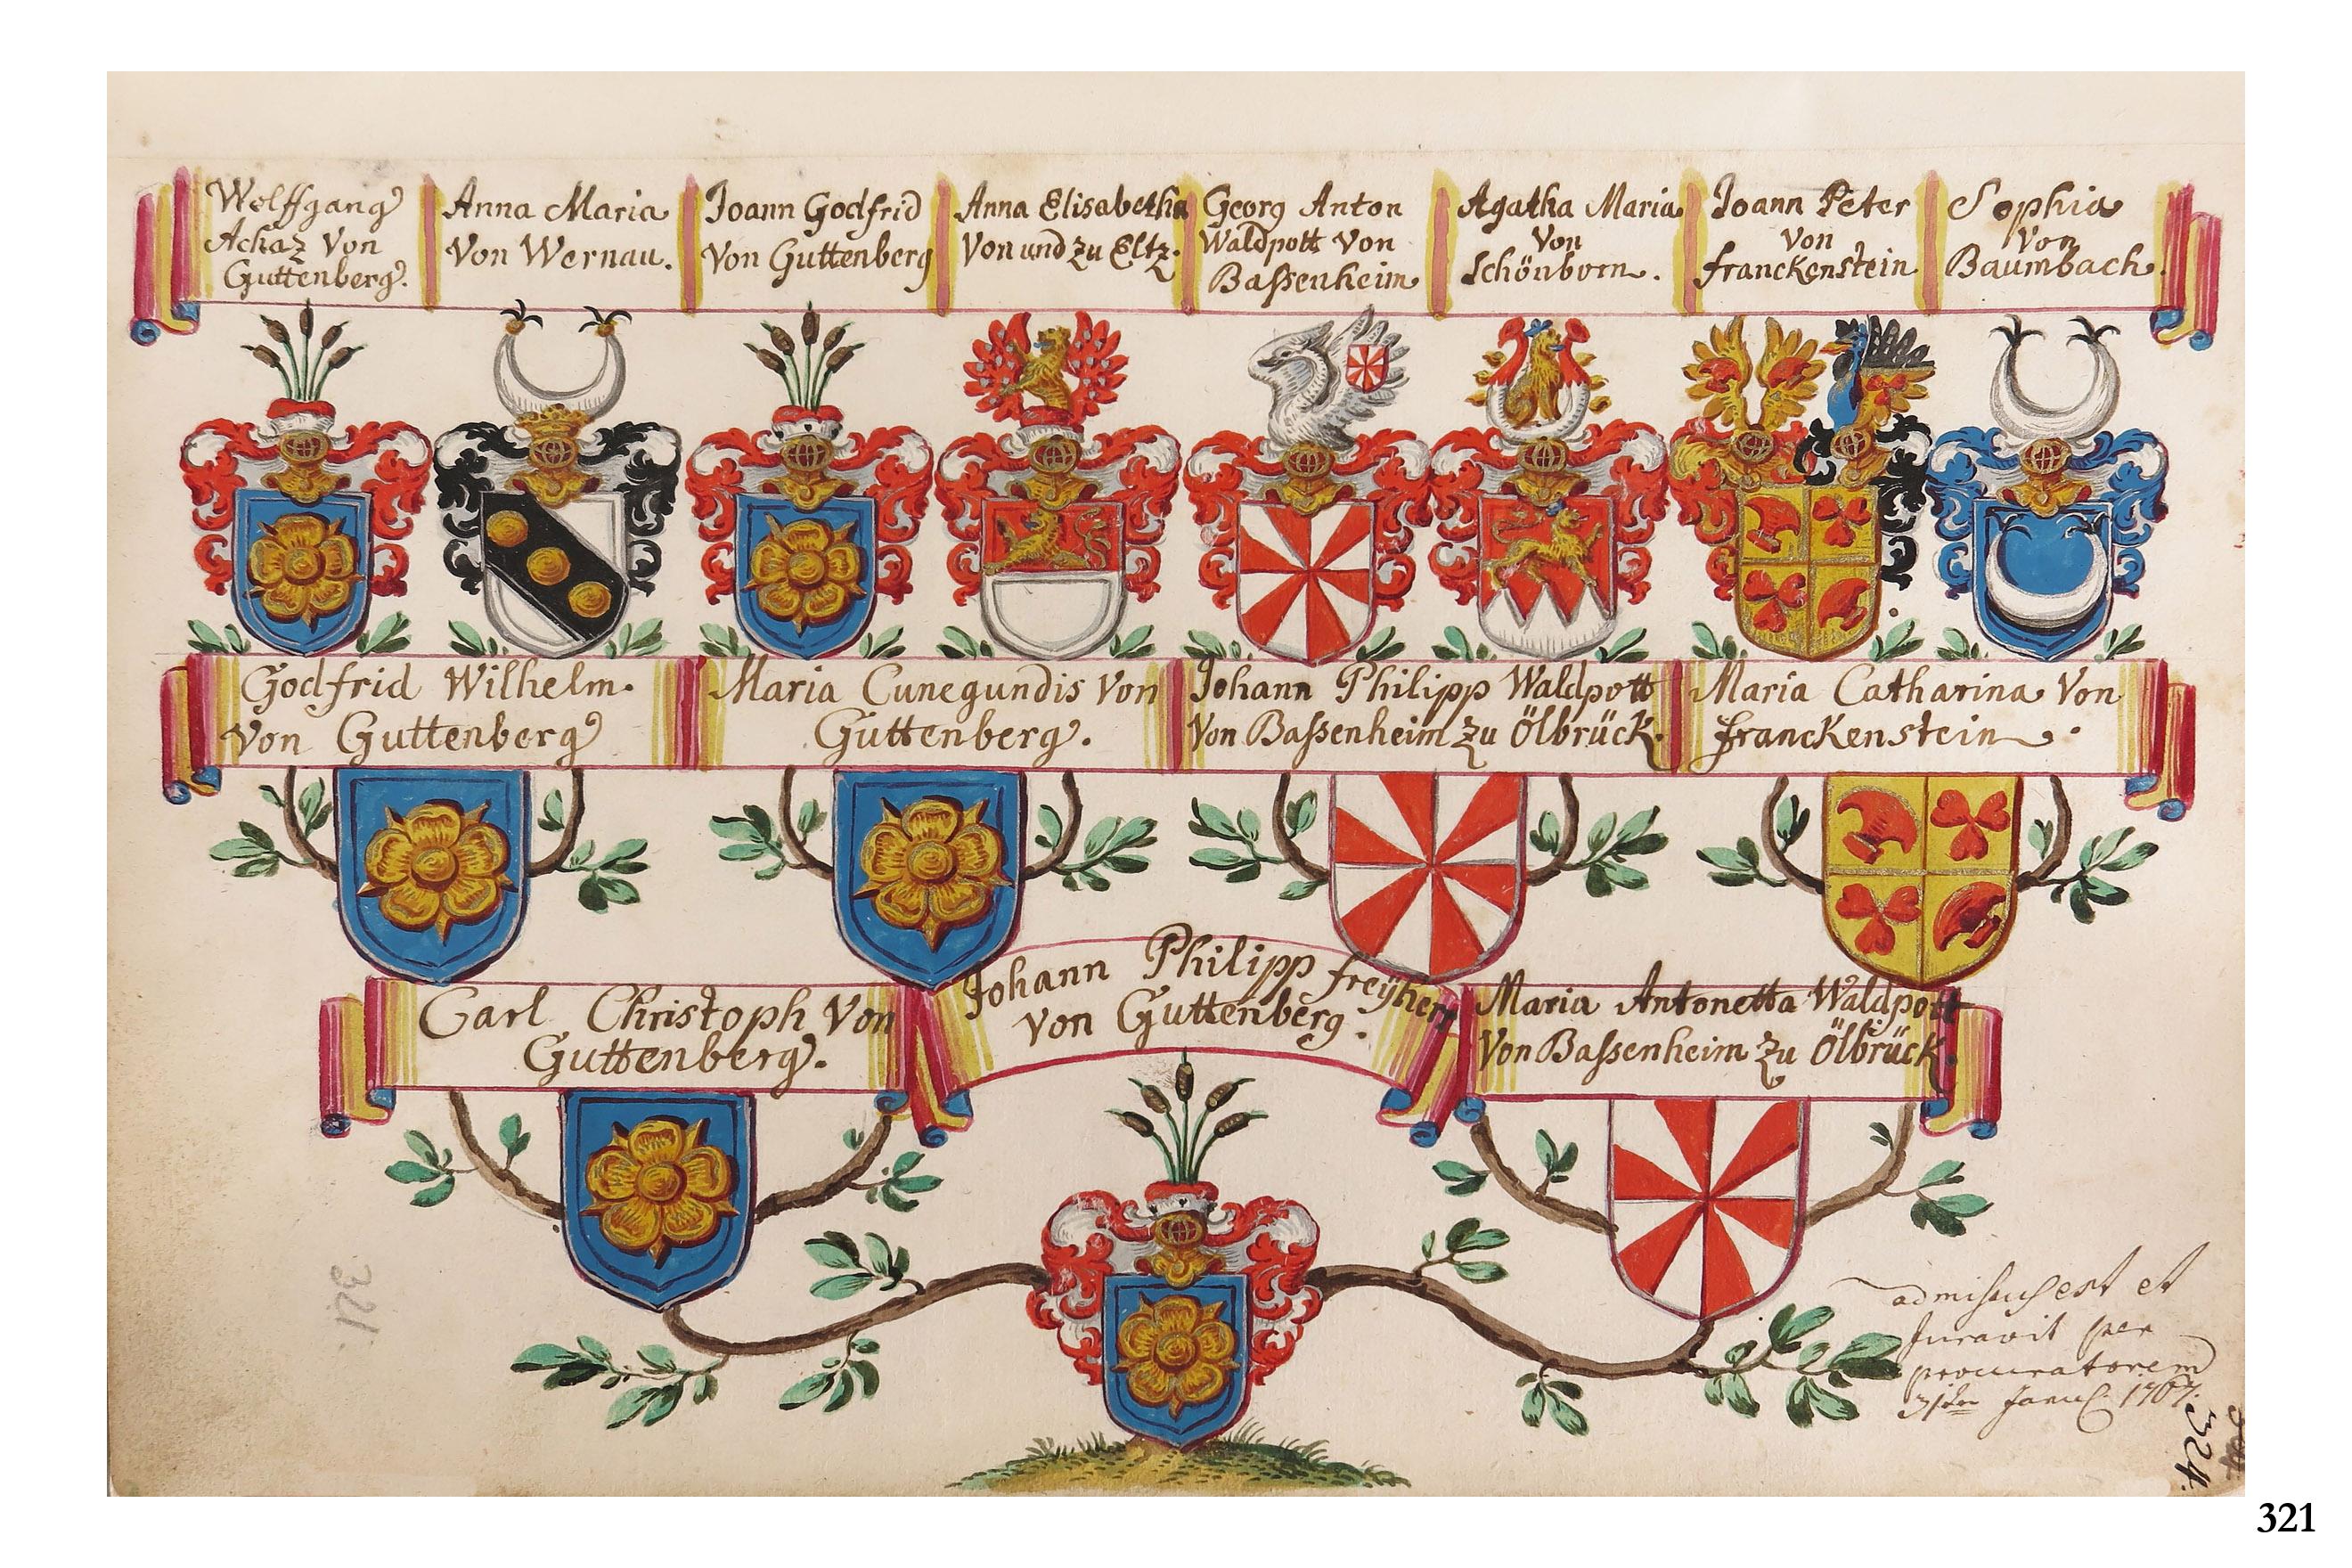 Wolffgang
Achaz Von
Guttenberg.
Anna Maria
Von Wernau.
Ioann Godfrid
Von Guttenberg
Anna Elisabetha
Von und zu Eltz.
Georg Anton
Waldpott Von
Baßenheim
Agatha Maria
Von
Schönborn.
Ioann Peter
Von
franckenstein
Sophia
Von
Baumbach.
Godfrid Wilhelm.
Von Guttenberg
Maria Cunegundis Von
Guttenberg.
Johann Philipp Waldpott
Von Baßenheim zu Ölbrück.
Maria Catharina Von
franckenstein.
Carl Christoph Von
Guttenberg.
Johann Philipp freÿherr
von Guttenberg.
Maria Antonetta Waldpott
Von Baßenheim zu Ölbrück.
admissus est et
Juravit per
procuratorem
31ten 1767.
321.
324.
321